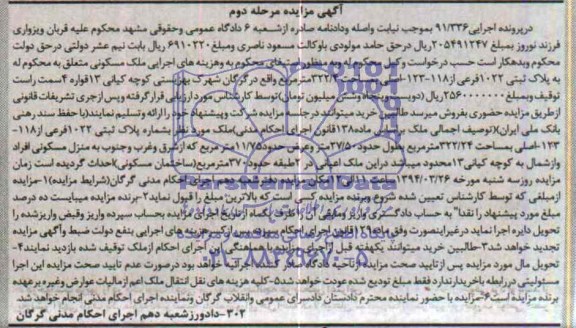 آگهی مزایده مرحله دوم
درپرونده اجرایی۹۱/۳۳۶ بموجب نیابت واصله ودادنامه صادره ازشعبه ۶ دادگاه عمومی وحقوقی مشهد محکوم علیه قربان ویزواری
فرزند نوروز بمبلغ ۲۰۵۴۹۱۲۴۷ریال درحق حامد مولودی باوکالت مسعود ناصری ومبلغ ۶۹۱۰۳۲۰ ریال بابت نیم عشر دولتی درحق دولت
محکوم وبدهکار است حسب درخواست وکیل محکوم له وبه منظور استیفای محکوم به وهزینه های اجرایی ملک مسکونی متعلق به محکوم له
به پلاک ثبتی ۱۰۲۲فرعی از۱۱۸-۱۲۳-اصلی مساحت ۳۲۲/۲۴مترمربع واقع درگرگان شهر ک بهزیستی کوچه کیانی ۱۳قواره ۴سمت راست
توقیف وبمبلغ ۲۵۶۰۰۰۰۰۰۰ریال (دویست وپنجاه وشش میلیون تومان)توسط کارشناس مورد ارزیابی قرار گرفته وپس ازجری تشریفات قانونی
ازطریق مزایده حضوری بفروش میرسد طالبین خرید میتوانند درجلسه مزایده شرکت وپیشنهاد خود را ارائه وتسلیم نمایند(با حفظ سند رهنی
بانک ملی ایران)(توصیف اجمالی ملک برابر ماده۱۳۸قانون اجرای احکام مدنی)ملک مورد نظر بشماره پلاک ثبتی ۱۰۲۲ فرعی از۱۱۸-
۱۲۳-اصلی بمساحت۳۲۲/۲۴مترمربع بطول حدود ۲۷/۵متر وعرض حدود۱۱/۷۵متر مربع که ازشرق وغرب وجنوب به منزل مسکونی افراد
وازشمال به کوچه کیانی۱۳محدود میباشد دراین ملک اعیانی در ۲طبقه حدود ۳۷۰مترمربع(ساختمان مسکونی)احداث گردیده است زمان
مزایده روزسه شنبه مورخه ۱۳۹۴/۰۳/۲۶ ساعت ۱۱الی۱۲مکان مزایده دفتر شعبه دهم اجرای احکام مدنی گرگان(شرایط مزایده)۱-مزایده
ازمبلغی که توسط کارشناس تعیین شده شروع وبرنده مزایده کسی است که بالاترین مبلغ را قبول نماید۲-برنده مزایده میبایست ده درصد
مبلغ مورد پیشنهاد را نقدا" به حساب دادگستری واریز ومابقی آن را ظرف یکماه ازتاریخ اجرای مزایده بحساب سپرده واریز وقبض واریزشده را
تحویل دایره اجرا نماید درغیر اینصورت وفق ماده۱۲۹قانون اجرای احکام مدنی پس از کسر هزینه های اجرایی بنفع دولت ضبط وآگهی مزایده
تجدید خواهد شد۳-طالبین خرید میتوانند یکهفته قبل ازاجرای مزایده با هماهنگی این اجرای احکام ازملک توقیف شده بازدید نمایند۴-
تحویل مال مورد مزایده پس ازتایید صحت مزایده ازناحیه دادگاه صادرکننده اجراییه خواهد بود درصورت عدم تایید صحت مزایده این اجرا
مسئولیتی دررابطه باخریدارندارد فقط مبلغ تودیع شده عودت خواهد شد۵-کلیه هزینه های نقل انتقال ملک اعم ازمالیات عوارض وغیره برعهده
برنده مزایده است۶-مزایده با حضور نماینده محترم دادستان دادسرای عمومی وانقلاب گرگان ونماینده اجرای احکام مدنی انجام خواهد شد.
۳۰۲-دادورزشعبه دهم اجرای احکام مدنی گرگان
ParsNamadData
۰۲۱-۸۸۳۴۹۶۷۰-۵